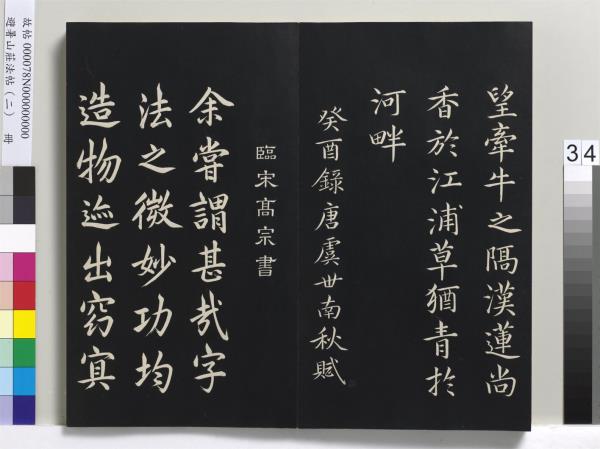 望牽牛之隔漢蓮尚
香於江浦草猶青於
河畔
癸酉錄唐虞世南秋賦
臨宋髙宗書
余嘗謂甚㢤字
法之微妙功均
造物迹出窈冥
故帖 000078N000000000
避暑山莊法帖(二) 冊
34